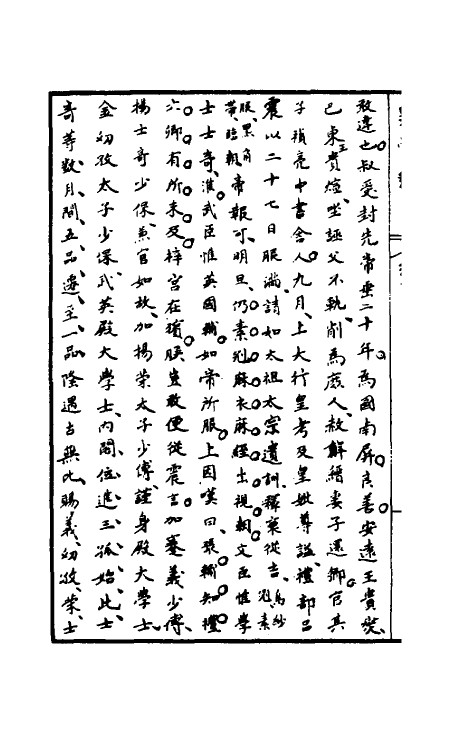 敢違也叔受封先帝垂二十年爲國南屏良善安遠王貴燮
巴東王貴煊坐誣父不軌削爲庶人赦解縉妻子還鄉官其
子禎亮中書舍人九月上大行皇考及皇妣尊諡禮部呂
震以二十七日服滿請如太祖太宗遺訓釋衰從吉烏紗冠素
服黑角帶臨朝帝報可明旦仍素冠麻衣麻絰出視朝文臣惟學
士士奇淮武臣惟英國輔如帝所服上因嘆曰張輔知禮
六卿有所未及梓宮在殯朕豈敢便從震言加蹇義少傅
楊士奇少保兼官如故加楊榮太子少傅謹身殿大學士
金幼孜太子少保武英殿大學士內閣位進三孤始此士
奇等數月間五品遷至一品隆遇古無此賜義幼孜榮士